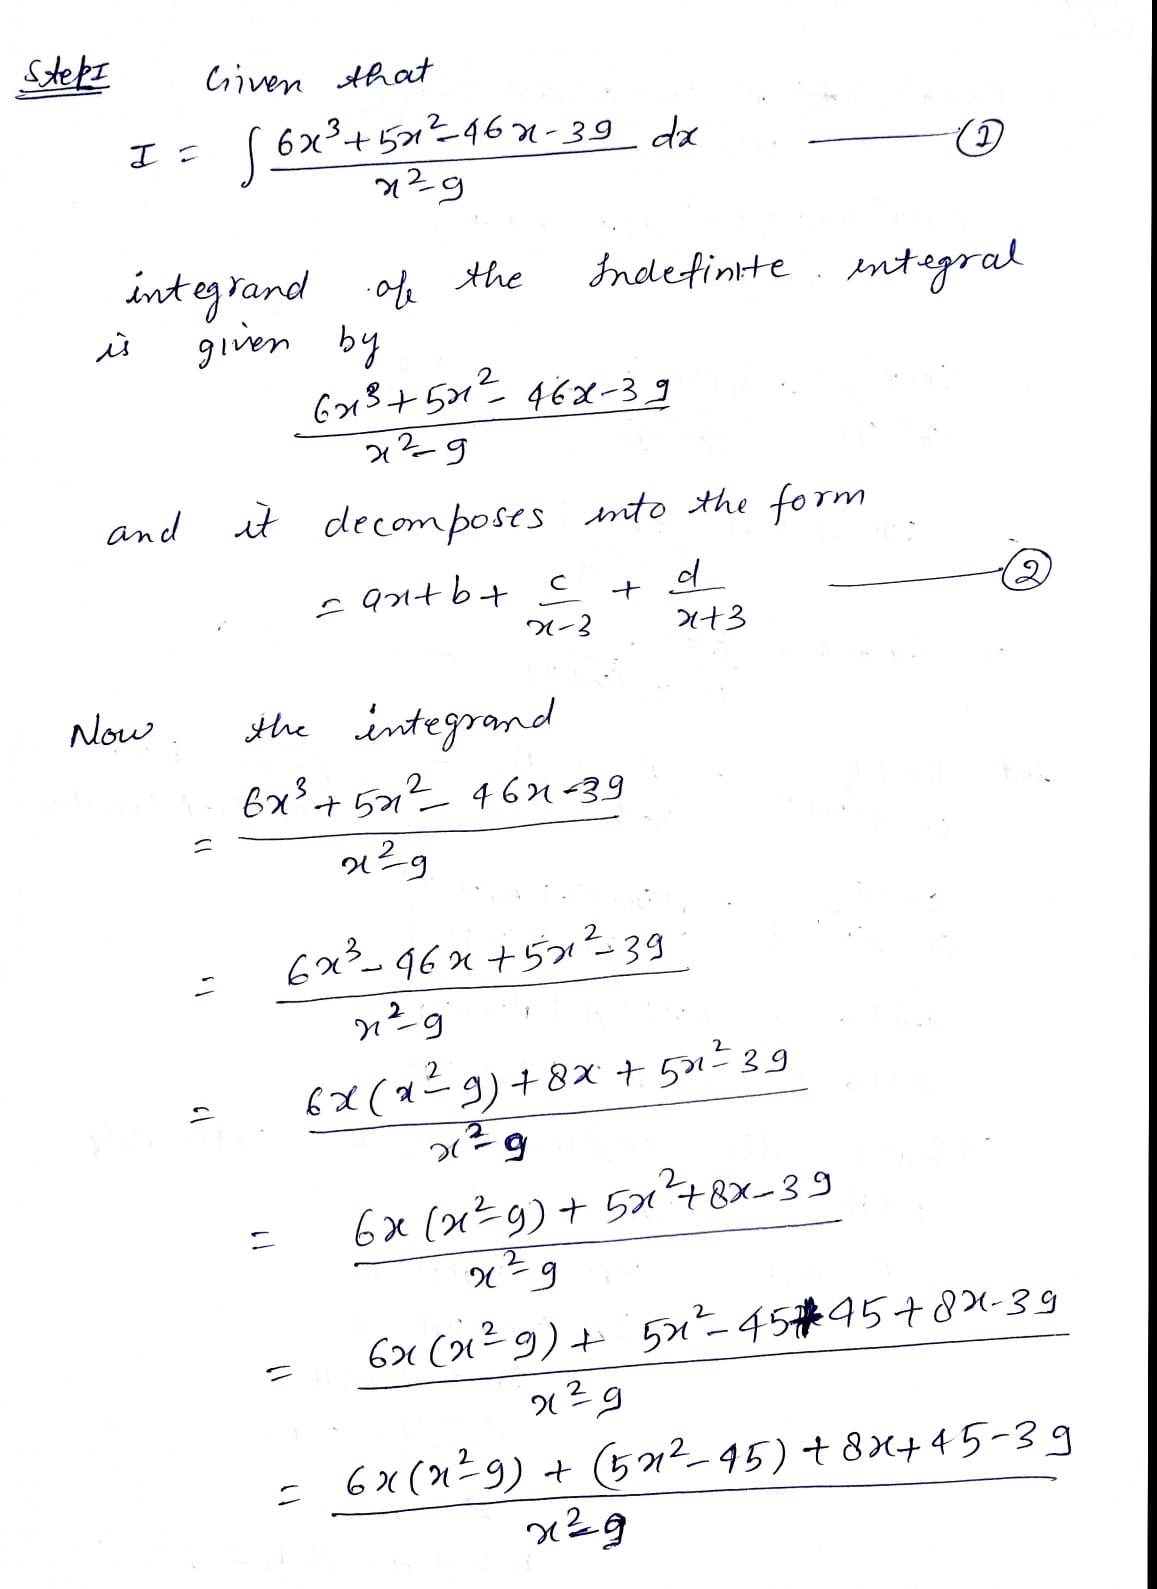 Step I Given that
I = ∫ (6x³ + 5x² - 46x - 39)/(x² - 9) dx ——— ①
integrand of the Indefinite integral
is given by
(6x³ + 5x² - 46x - 39)/(x² - 9)
and it decomposes into the form
= ax + b + c/(x-3) + d/(x+3) ——— ②
Now the integrand
= (6x³ + 5x² - 46x - 39)/(x² - 9)
= (6x³ - 46x + 5x² - 39)/(x² - 9)
= (6x(x² - 9) + 8x + 5x² - 39)/(x² - 9)
= (6x(x² - 9) + 5x² + 8x - 39)/(x² - 9)
= (6x(x² - 9) + 5x² - 45 + 45 + 8x - 39)/(x² - 9)
= (6x(x² - 9) + (5x² - 45) + 8x + 45 - 39)/(x² - 9)